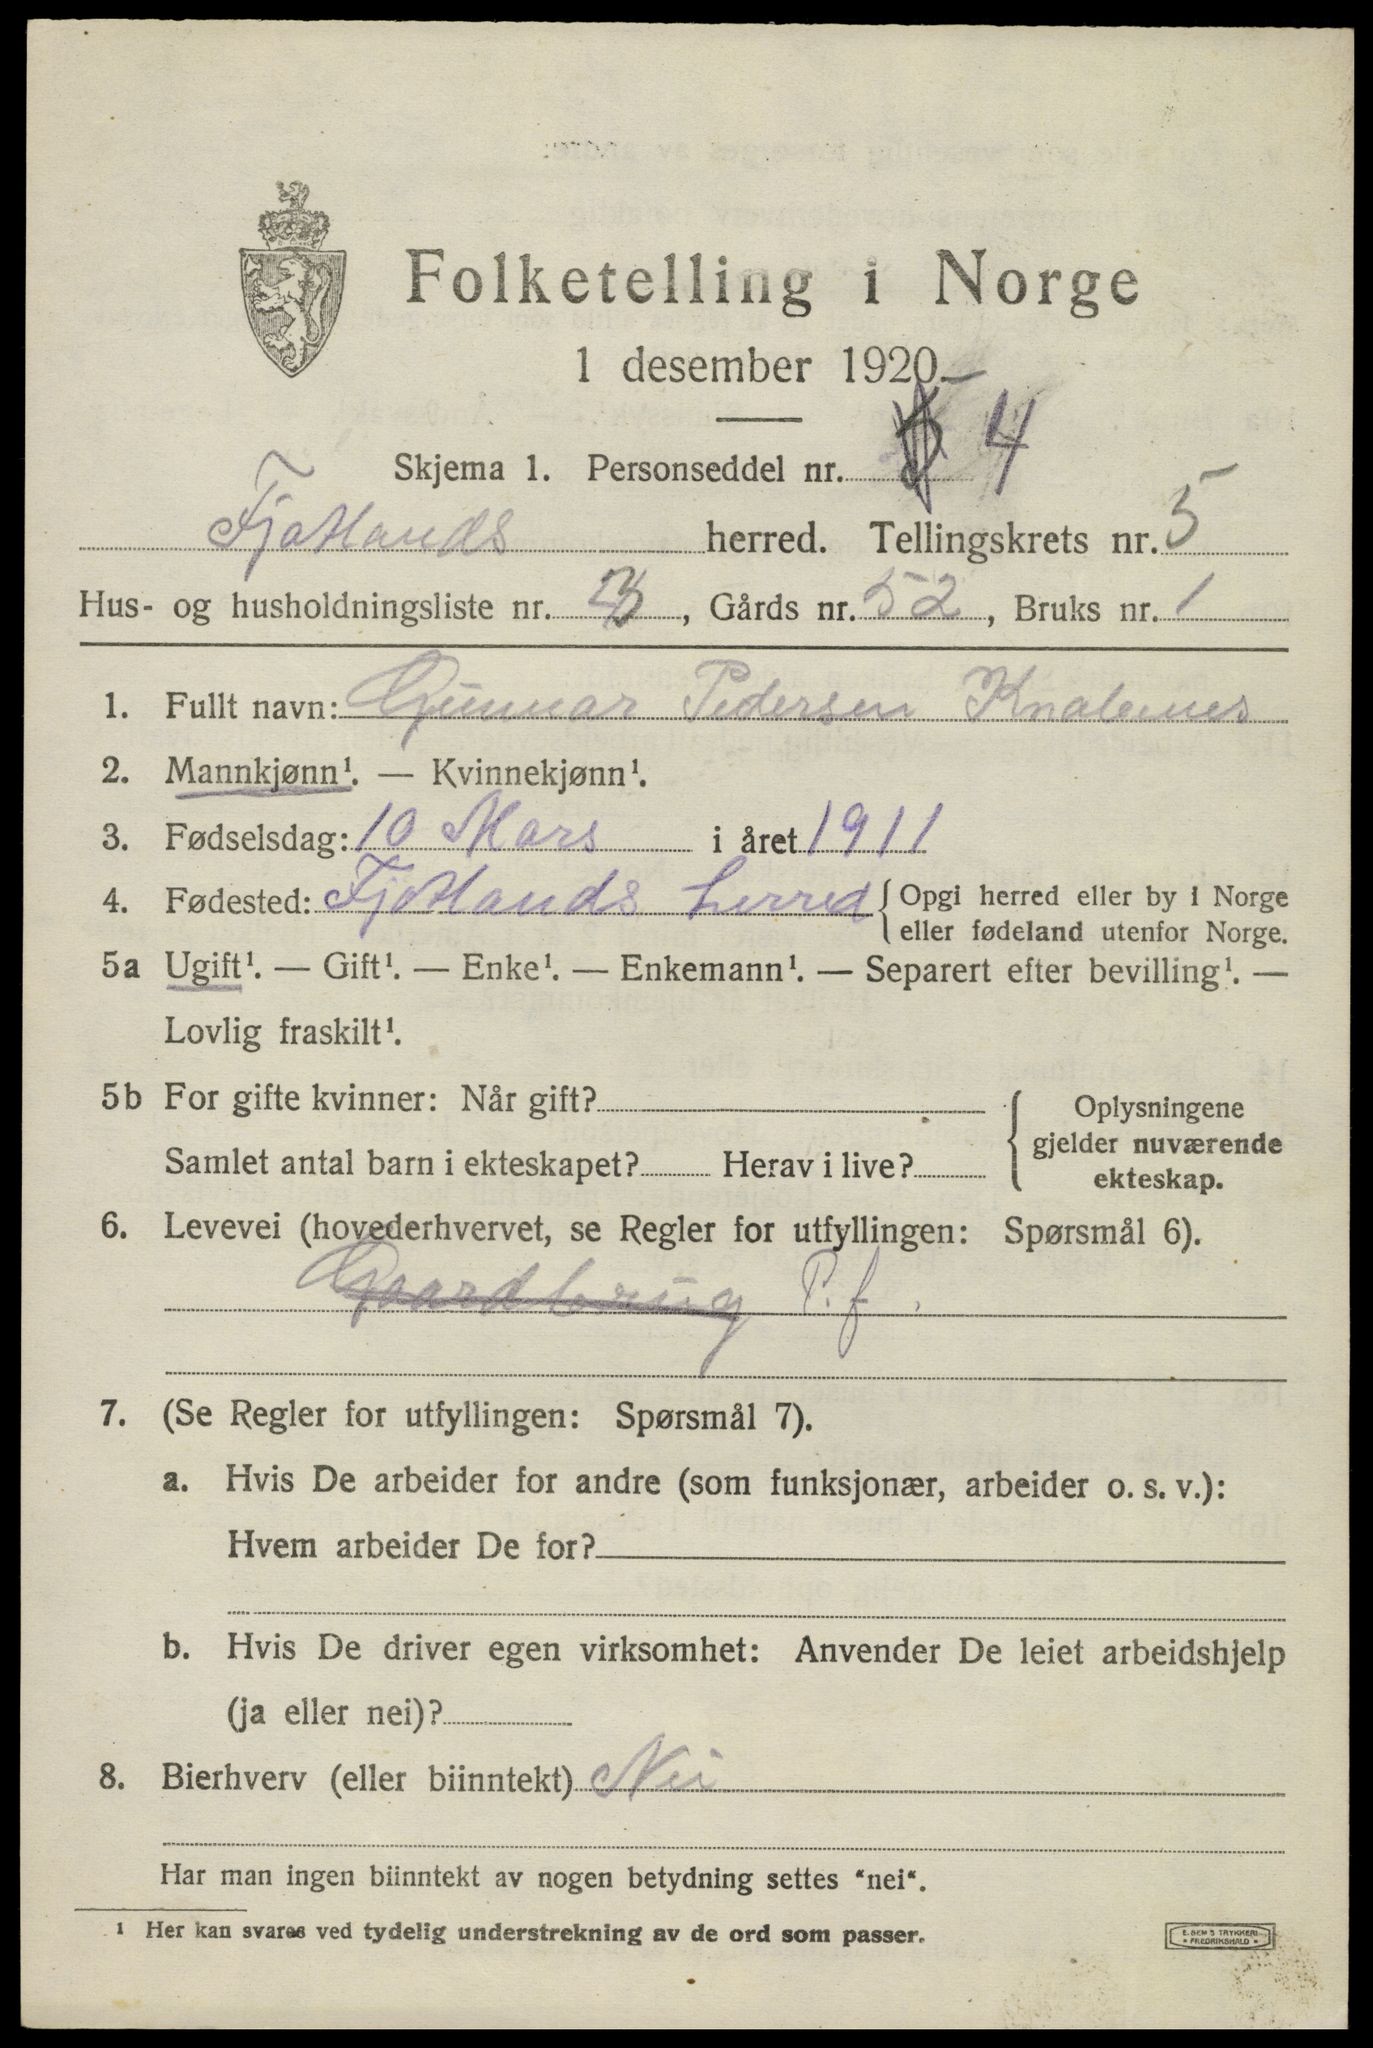 Folketelling i Norge
1 desember 1920.
Skjema 1. Personseddel nr. 4
Fjotlands herred. Tellingskrets nr. 5
Hus- og husholdningsliste nr. 3, Gårds nr. 52, Bruks nr. 1
1. Fullt navn: Gunnar Pedersen
2. Mannkjønn¹. — Kvinnekjønn¹.
3. Fødselsdag: 10 Mars i året 1911
4. Fødested: Fjotlands herred { Opgi herred eller by i Norge
eller fødeland utenfor Norge.
5a Ugift¹. — Gift¹. — Enke¹. — Enkemann¹. — Separert efter bevilling¹. —
Lovlig fraskilt¹.
5b For gifte kvinner: Når gift? { Oplysningene
gjelder nuværende
Samlet antal barn i ekteskapet? Herav i live?
ekteskap.
6. Levevei (hovederhvervet, se Regler for utfyllingen: Spørsmål 6).
Gaardbrug P. f.
7. (Se Regler for utfyllingen: Spørsmål 7).
a. Hvis De arbeider for andre (som funksjonær, arbeider o. s. v.):
Hvem arbeider De for?
b. Hvis De driver egen virksomhet: Anvender De leiet arbeidshjelp
(ja eller nei)?
8. Bierhverv (eller biinntekt) Nei
Har man ingen biinntekt av nogen betydning settes "nei".
¹ Her kan svares ved tydelig understrekning av de ord som passer.
E. SEM'S TRYKKERI
• FREDRIKSHALD •